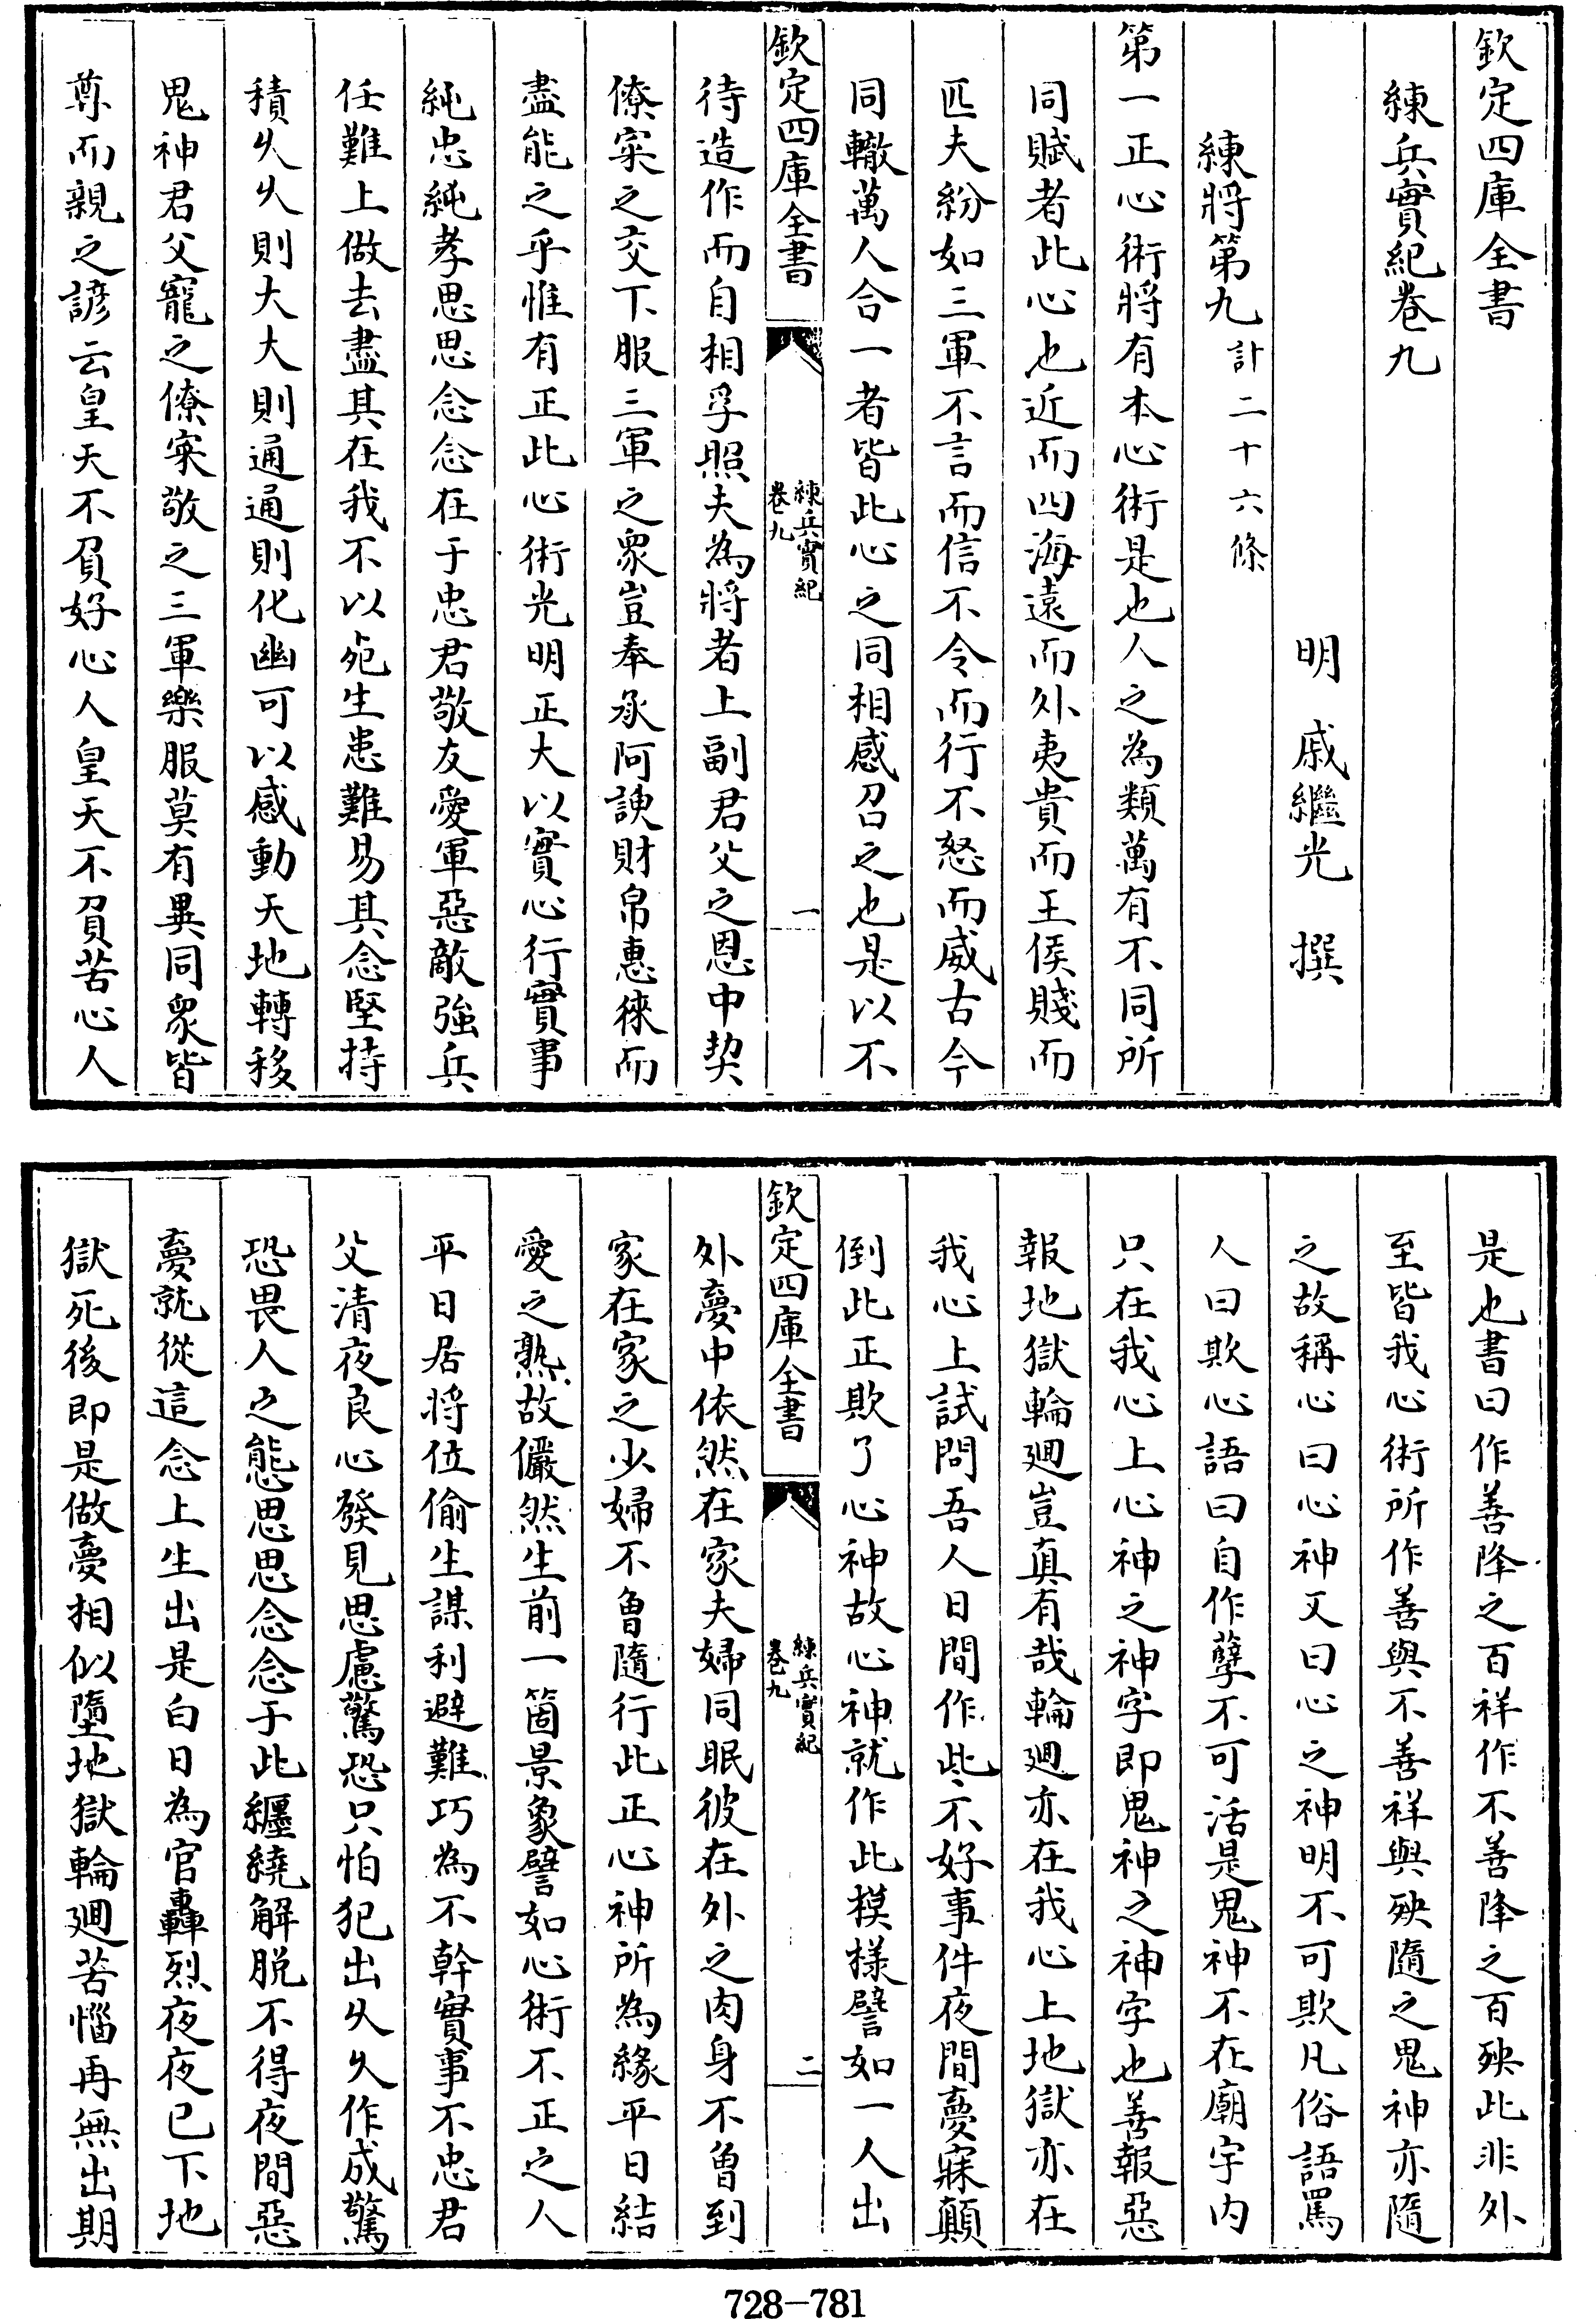 欽定四庫全書
練兵實紀卷九
明 戚繼光 撰
練將第九計二十六條
第一正心術將有本心術是也人之為類萬有不同所
同賦者此心也近而四海遠而外夷貴而王侯賤而
匹夫紛如三軍不言而信不令而行不怒而威古今
同轍萬人合一者皆此心之同相感召之也是以不
欽定四庫全書
練兵實紀
卷九
一
待造作而自相孚照夫為將者上副君父之恩中契
僚寀之交下服三軍之衆豈奉承阿諛財帛惠徠而
盡能之乎惟有正此心術光明正大以實心行實事
純忠純孝思思念念在于忠君敬友愛軍惡敵強兵
任難上做去盡其在我不以死生患難易其念堅持
積久久則大大則通通則化幽可以感動天地轉移
鬼神君父寵之僚寀敬之三軍樂服莫有異同衆皆
尊而親之諺云皇天不負好心人皇天不負苦心人
是也書曰作善降之百祥作不善降之百殃此非外
至皆我心術所作善與不善祥與殃隨之鬼神亦隨
之故稱心曰心神又曰心之神明不可欺凡俗語罵
人曰欺心語曰自作孽不可活是鬼神不在廟宇内
只在我心上心神之神字即鬼神之神字也善報惡
報地獄輪迴豈真有哉輪迴亦在我心上地獄亦在
我心上試問吾人日間作些不好事件夜間夢寐顛
倒此正欺了心神故心神就作此模樣譬如一人出
欽定四庫全書
練兵實紀
卷九
二
外夢中依然在家夫婦同眠彼在外之肉身不曾到
家在家之少婦不曾隨行此正心神所為緣平日結
愛之熟故儼然生前一箇景象譬如心術不正之人
平日居將位偷生謀利避難巧為不幹實事不忠君
父清夜良心發見思慮驚恐只怕犯出久久作成驚
恐畏人之態思思念念于此纒繞解脱不得夜間惡
夢就從這念上生出是白日為官轟烈夜夜已下地
獄死後即是做夢相似墮地獄輪迴苦惱再無出期
728-781